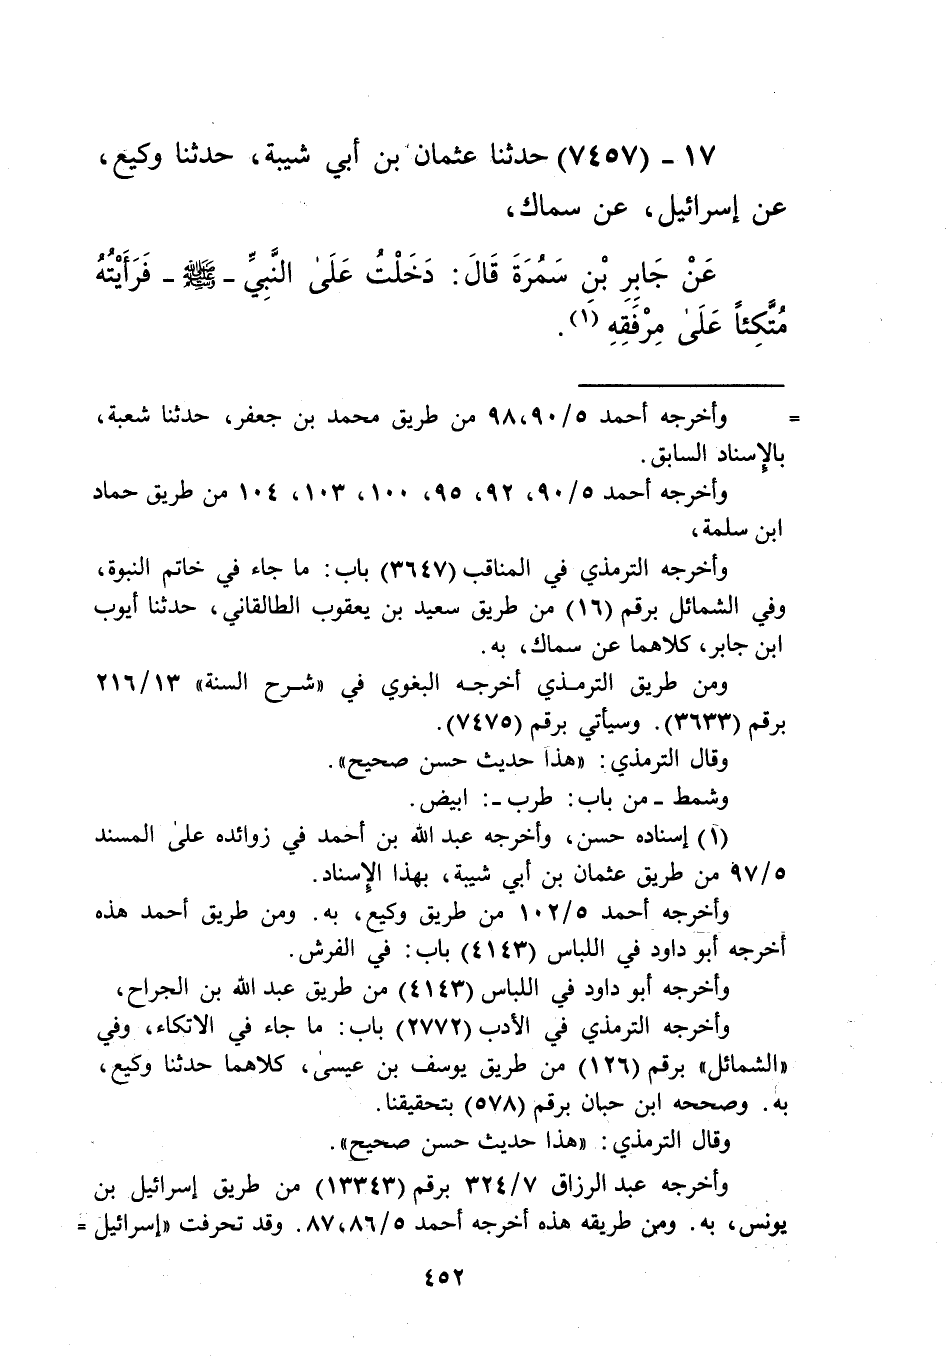 ١٧ - (٧٤٥٧) حدثنا عثمان بن أبي شيبة، حدثنا وكيع،
عن إسرائيل، عن سماك،
عَنْ جَابِرِ بْنِ سَمُرَةَ قَالَ: دَخَلْتُ عَلَىٰ النَّبِيِّ - ﷺ - فَرَأَيْتُهُ
مُتَّكِئاً عَلَىٰ مِرْفَقِهِ (١).
= وأخرجه أحمد ٥/ ٩٠، ٩٨ من طريق محمد بن جعفر، حدثنا شعبة،
بالإسناد السابق.
وأخرجه أحمد ٥/ ٩٠، ٩٢، ٩٥، ١٠٠، ١٠٣، ١٠٤ من طريق حماد
ابن سلمة،
وأخرجه الترمذي في المناقب (٣٦٤٧) باب: ما جاء في خاتم النبوة،
وفي الشمائل برقم (١٦) من طريق سعيد بن يعقوب الطالقاني، حدثنا أيوب
ابن جابر، كلاهما عن سماك، به.
ومن طريق الترمذي أخرجه البغوي في «شرح السنة» ١٣/ ٢١٦
برقم (٣٦٣٣). وسيأتي برقم (٧٤٧٥).
وقال الترمذي: «هذا حديث حسن صحيح».
وشمط - من باب: طرب -: ابيض.
(١) إسناده حسن، وأخرجه عبد الله بن أحمد في زوائده علىٰ المسند
٥/ ٩٧ من طريق عثمان بن أبي شيبة، بهذا الإسناد.
وأخرجه أحمد ٥/ ١٠٢ من طريق وكيع، به. ومن طريق أحمد هذه
أخرجه أبو داود في اللباس (٤١٤٣) باب: في الفرش.
وأخرجه أبو داود في اللباس (٤١٤٣) من طريق عبد الله بن الجراح،
وأخرجه الترمذي في الأدب (٢٧٧٢) باب: ما جاء في الاتكاء، وفي
«الشمائل» برقم (١٢٦) من طريق يوسف بن عيسىٰ، كلاهما حدثنا وكيع،
به. وصححه ابن حبان برقم (٥٧٨) بتحقيقنا.
وقال الترمذي: «هذا حديث حسن صحيح».
وأخرجه عبد الرزاق ٧/ ٣٢٤ برقم (١٣٣٤٣) من طريق إسرائيل بن
يونس، به. ومن طريقه هذه أخرجه أحمد ٥/ ٨٦، ٨٧. وقد تحرفت «إسرائيل =
٤٥٢